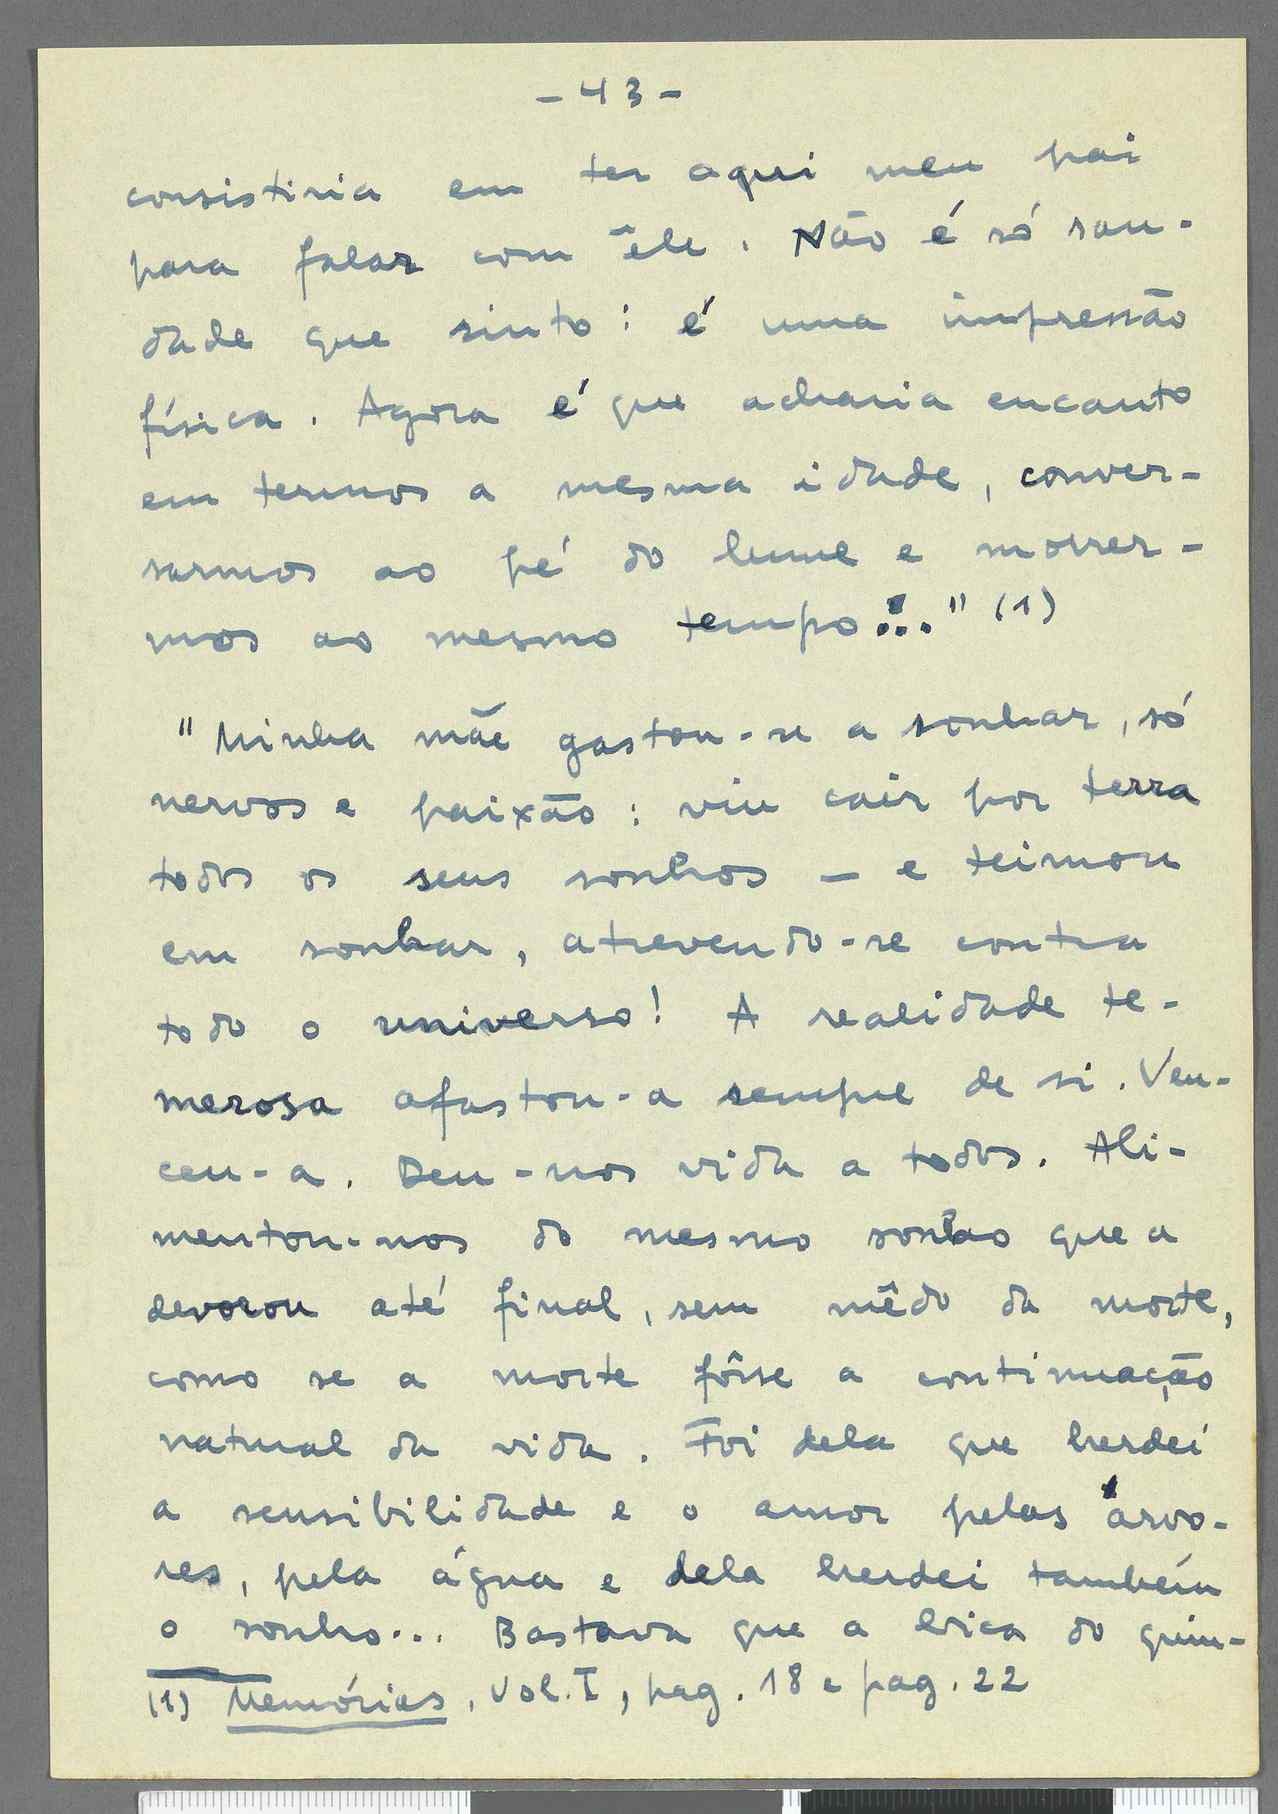 - 43 -
consistiria em ter aqui meu pai
para falar com êle. Não é só sau-
dade que sinto: é uma impressão
física. Agora é que acharia encanto
em termos a mesma idade, conver-
sarmos ao pé do lume e morrer-
mos ao mesmo tempo!..." (1)
"Minha mãe gastou-se a sonhar, só
nervos e paixão: viu cair por terra
todos os seus sonhos — e teimou
em sonhar, atrevendo-se contra
todo o universo! A realidade te-
merosa afastou-a sempre de si. Ven-
ceu-a. Deu-nos vida a todos. Ali-
mentou-nos do mesmo sonho que a
devorou até final, sem mêdo da morte,
como se a morte fôsse a continuação
natural da vida. Foi dela que herdei
a sensibilidade e o amor pelas árvo-
res, pela água e dela herdei também
o sonho... Bastava que a bica do quin-
(1) Memórias, Vol. I, pag. 18 e pag. 22